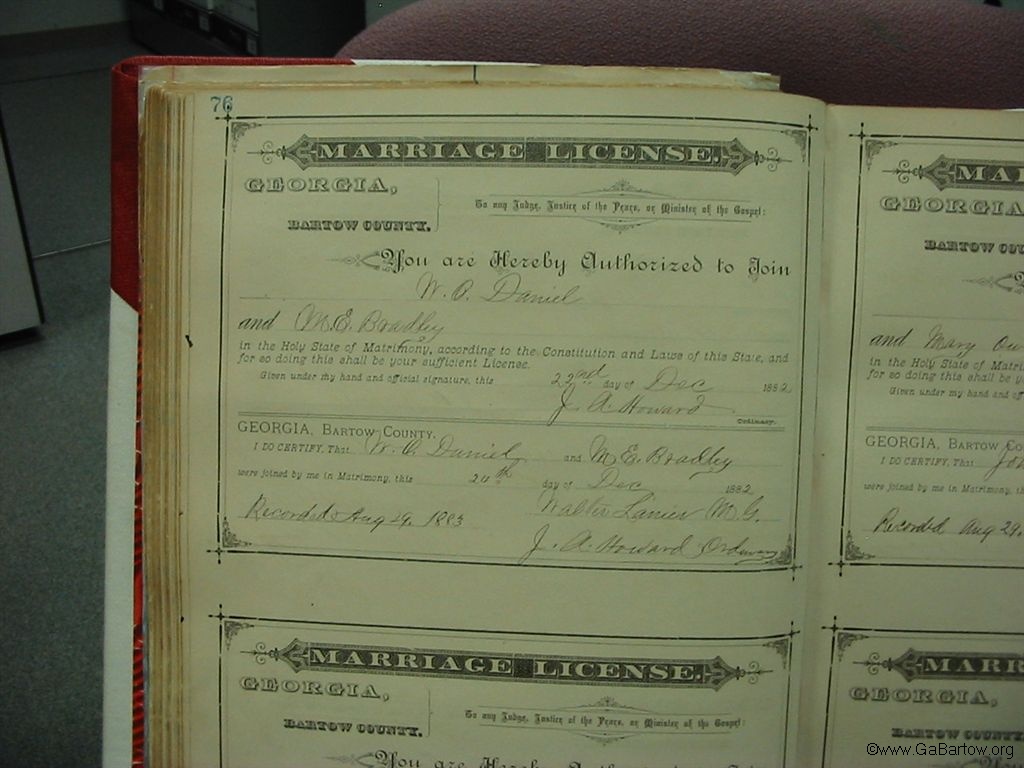 76
MARRIAGE LICENSE.
GEORGIA,
BARTOW COUNTY.
To any Judge, Justice of the Peace, or Minister of the Gospel:
You are Hereby Authorized to Join
W. O. Daniel
and M. E. Bradley
in the Holy State of Matrimony, according to the Constitution and Laws of this State, and
for so doing this shall be your sufficient License.
Given under my hand and official signature, this 22nd day of Dec 1882
J. A. Howard
Ordinary.
GEORGIA, BARTOW COUNTY.
I DO CERTIFY, That W. O. Daniel and M. E. Bradley
were joined by me in Matrimony, this 24th day of Dec 1882
Recorded Aug 29. 1883 Lanier M. G.
J. A. Howard Ordinary
MARRIAGE LICENSE.
GEORGIA,
BARTOW COUNTY.
To any Judge, Justice of the Peace, or Minister of the Gospel:
You are Hereby Authorized to Join
GEORGIA
BARTOW
and Mary
in the Holy State of
for so doing this shall be
Given under my hand and
GEORGIA, BARTOW
I DO CERTIFY, That
were joined by me in Matrimony,
Recorded Aug 29.
GEORGIA,
BARTOW COUNTY
©www.GaBartow.org